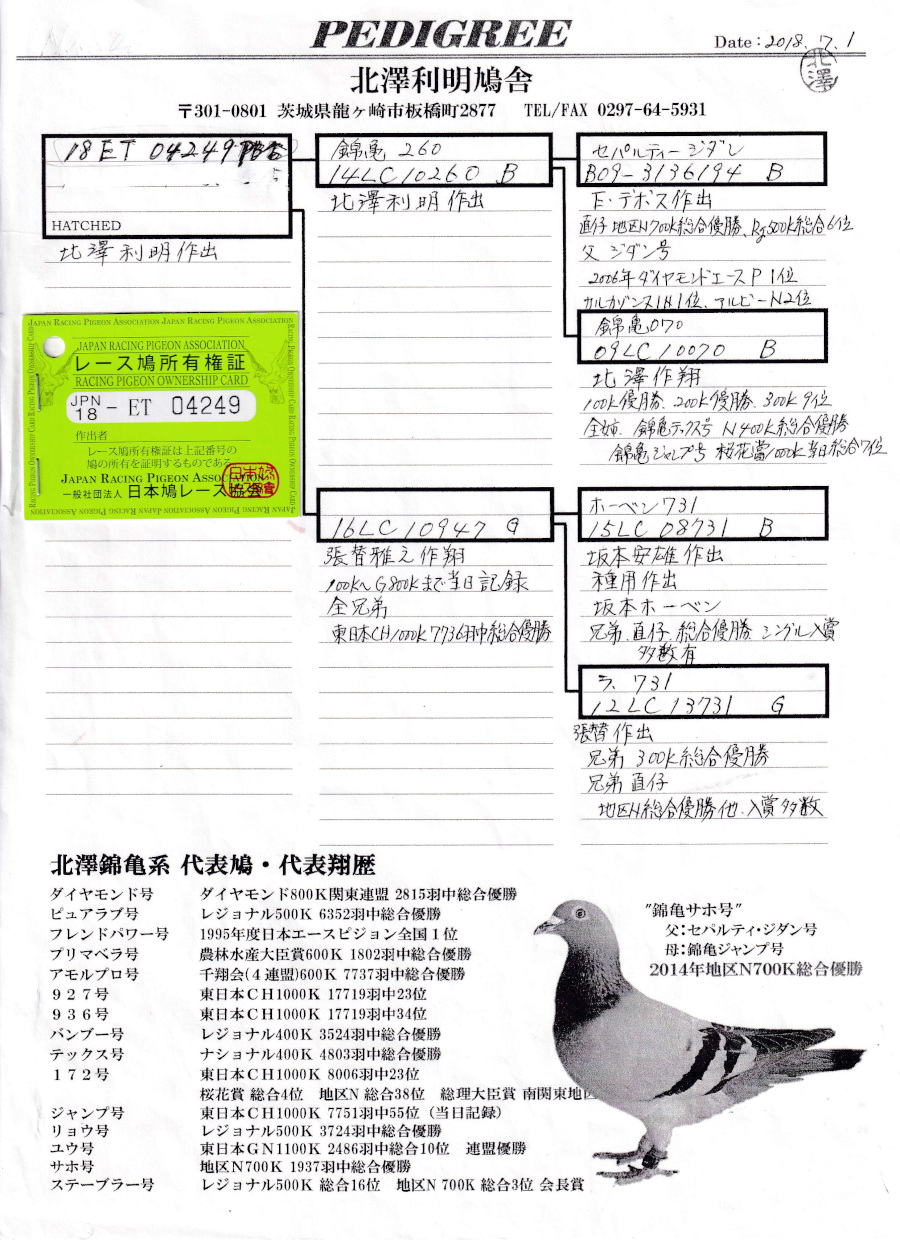 PEDIGREE
Date : 2018. 7. 1
北澤
北澤利明鳩舎
〒301-0801 茨城県龍ヶ崎市板橋町2877 TEL/FAX 0297-64-5931
18 ET 04249
HATCHED
北澤利明作出
JAPAN RACING PIGEON ASSOCIATION JAPAN RACING PIGEON ASSOCIATION
JAPAN RACING PIGEON ASSOCIATION
レース鳩所有権証
RACING PIGEON OWNERSHIP CARD
JPN 18 - ET 04249
作出者
レース鳩所有権証は上記番号の
鳩の所有を証明するものである
JAPAN RACING PIGEON ASSOCIATION
一般社団法人 日本鳩レース協会
錦亀 260
14LC10260 B
北澤利明作出
16LC10947 G
張替雅之作翔
100K〜G800Kまで当日記録
全兄弟
東日本CH1000K 7736羽中総合優勝
セパルティージダン
B09-3136194 B
E・デボス作出
直仔 地区N700K総合優勝、Rg500K総合6位
父 ジダン号
2006年ダイヤモンドエースP1位
カルカソンヌIN1位、アルビーN2位
錦亀070
09LC10070 B
北澤作翔
100K優勝、200K優勝、300K 9位
全姉 錦亀テックス号 N400K総合優勝
錦亀ジャンプ号 桜花賞1000K当日総合7位
ホーベン731
15LC08731 B
坂本安雄作出
種用作出
坂本ホーベン
兄弟、直仔、総合優勝 シングル入賞
多数有
ラ、731
12LC13731 G
張替作出
兄弟 300K総合優勝
兄弟直仔
地区N総合優勝他、入賞多数
北澤錦亀系 代表鳩・代表翔歴
ダイヤモンド号 ダイヤモンド800K関東連盟 2815羽中総合優勝
ピュアラブ号 レジョナル500K 6352羽中総合優勝
フレンドパワー号 1995年度日本エースピジョン全国1位
プリマベラ号 農林水産大臣賞600K 1802羽中総合優勝
アモルプロ号 千翔会(4連盟)600K 7737羽中総合優勝
927号 東日本CH1000K 17719羽中23位
936号 東日本CH1000K 17719羽中34位
バンブー号 レジョナル400K 3524羽中総合優勝
テックス号 ナショナル400K 4803羽中総合優勝
172号 東日本CH1000K 8006羽中23位
桜花賞 総合4位 地区N 総合38位 総理大臣賞 南関東地区
ジャンプ号 東日本CH1000K 7751羽中55位（当日記録）
リョウ号 レジョナル500K 3724羽中総合優勝
ユウ号 東日本GN1100K 2486羽中総合10位 連盟優勝
サホ号 地区N700K 1937羽中総合優勝
ステーブラー号 レジョナル500K 総合16位 地区N 700K 総合3位 会長賞
"錦亀サホ号"
父：セパルティ・ジダン号
母：錦亀ジャンプ号
2014年地区N700K総合優勝